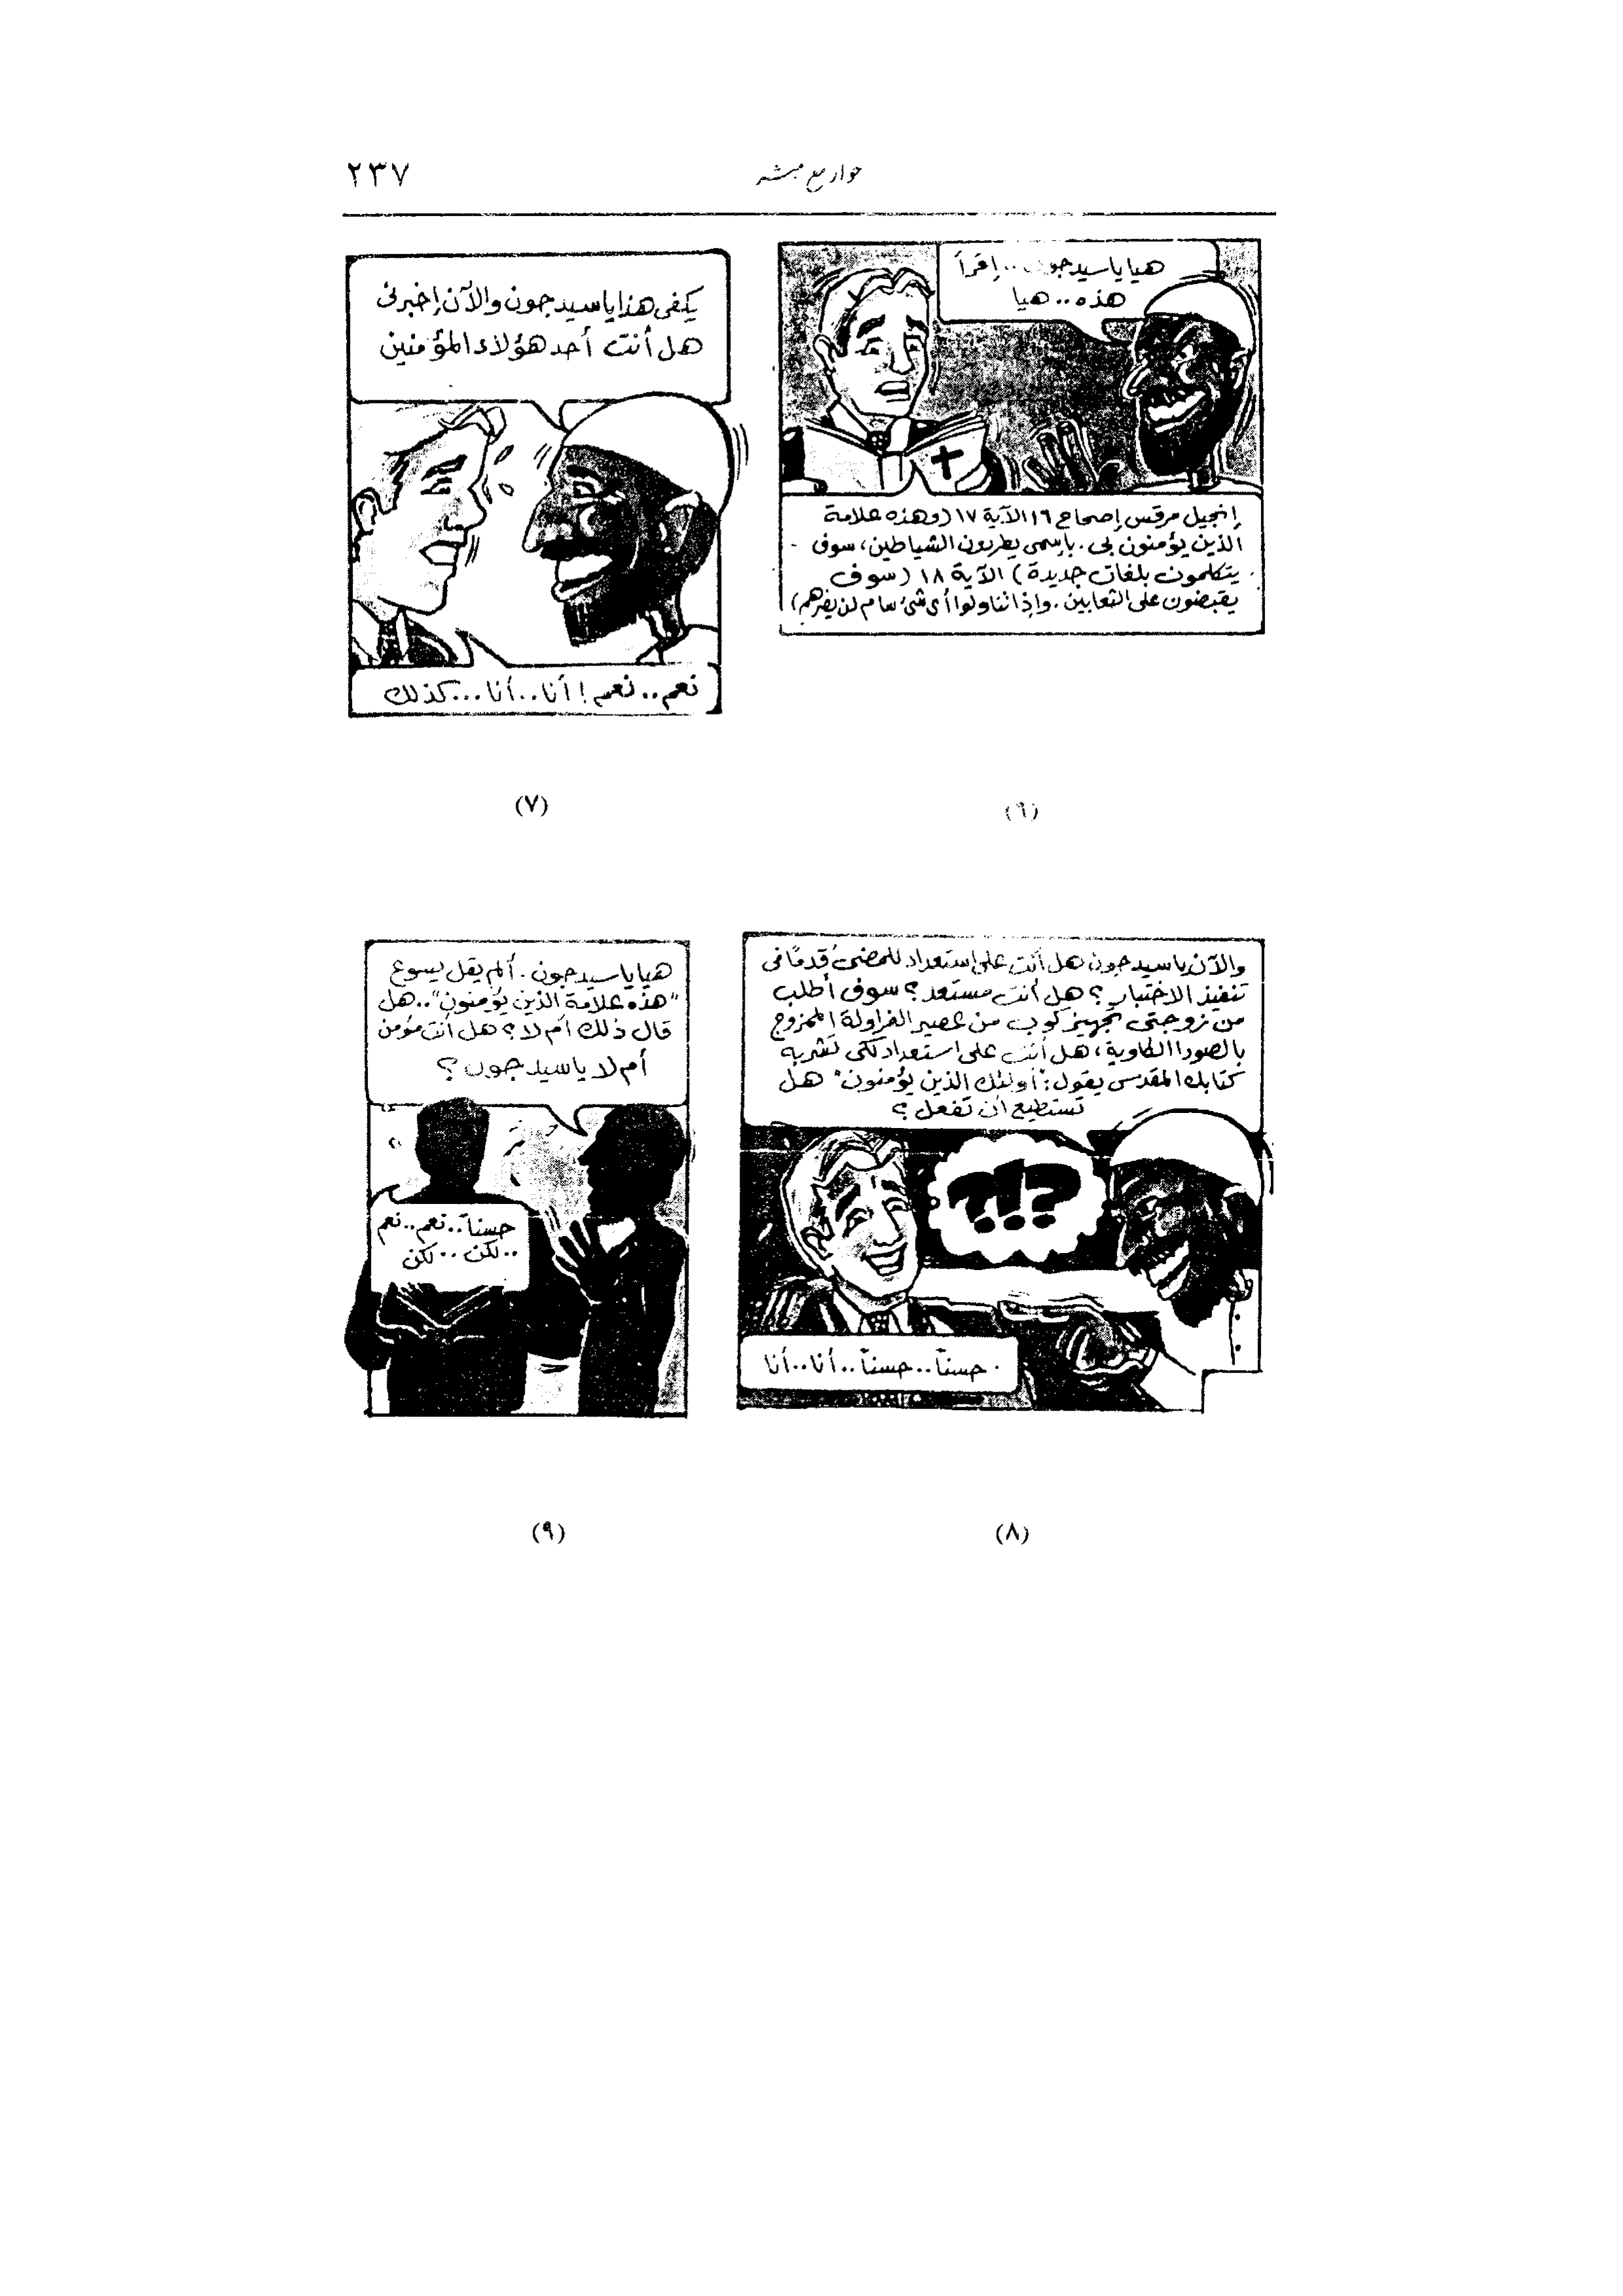 حوار مع مبشر
٢٣٧
هيا ياسيدجون..إقرأ
هذه..هيا
إنجيل مرقس إصحاح ١٦ الآية ١٧ (وهذه علامة
الذين يؤمنون بى. بإسمى يطردون الشياطين، سوف
يتكلمون بلغات جديدة) الآية ١٨ (سوف
يقبضون على الثعابين. وإذا تناولوا أى شئ سام لن يضرهم)
(٦)
يكفى هذا ياسيدجون والآن إخبرنى
هل أنت أحد هؤلاء المؤمنين
نعم..نعم! أنا..أنا...كذلك
(٧)
والآن ياسيدجون هل أنت على إستعداد للمضى قدمًا فى
تنفيذ الاختبار؟ هل أنت مستعد؟ سوف أطلب
من زوجتى تجهيز كوب من عصير الفراولة الممزوج
بالصودا الكاوية، هل أنت على استعداد لكى تشربه
كتابك المقدس يقول: "أولئك الذين يؤمنون" هل
تستطيع أن تفعل؟
؟!؟
حسناً..حسناً..أنا..أنا
(٨)
هيا ياسيدجون. ألم يقل يسوع
"هذه علامة الذين يؤمنون"..هل
قال ذلك أم لا؟ هل أنت مؤمن
أم لا ياسيدجون؟
حسناً..نعم..نعم
..لكن..لكن
(٩)